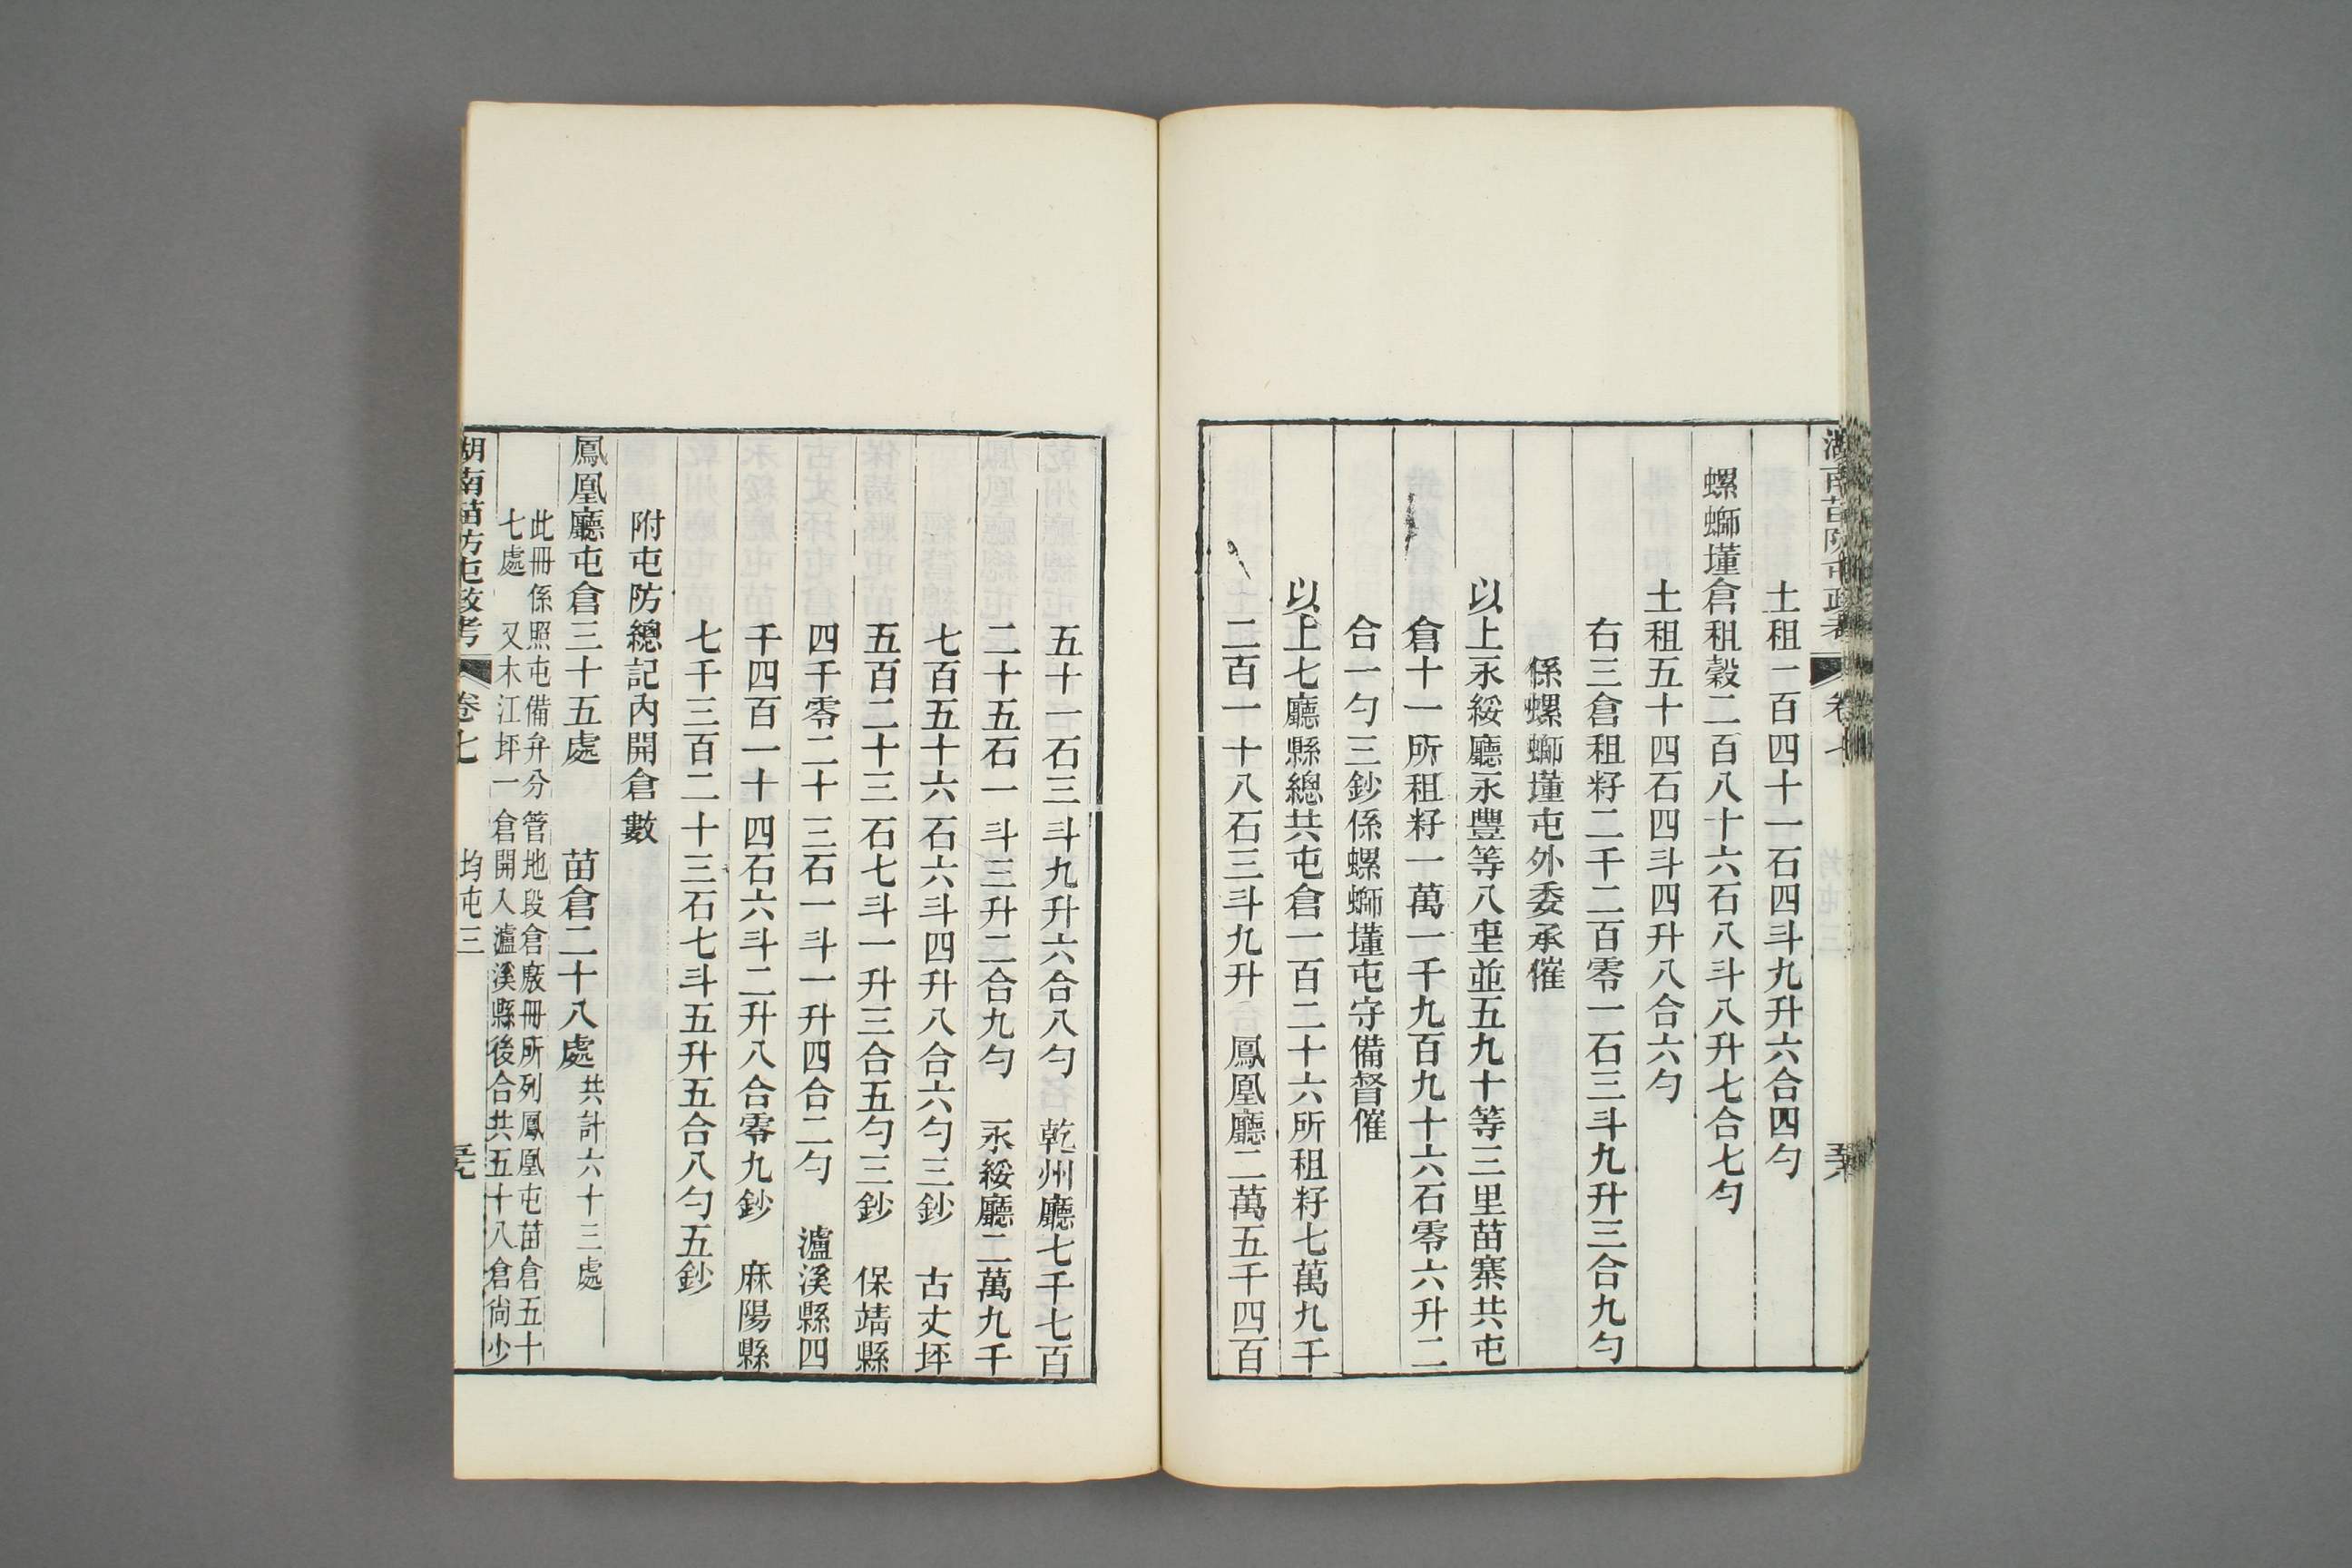 土租一百四十一石四斗九升六合四勺
螺螄墐倉租穀二百八十六石八斗八升七合七勺
土租五十四石四斗四升八合六勺
右三倉租籽二千二百零一石三斗九升三合九勺
係螺螄墐屯外委承催
以上永綏廳永豐等八里並五九十等三里苗寨共屯
倉十一所租籽一萬一千九百九十六石零六升二
合一勺三鈔係螺螄墐屯守備督催
以上七廳縣總共屯倉一百二十六所租籽七萬九千
二百一十八石三斗九升 鳳凰廳二萬五千四百
五十一石三斗九升六合八勺 乾州廳七千七百
二十五石一斗三升二合九勺 永綏廳二萬九千
七百五十六石六斗四升八合六勺三鈔 古丈坪
五百二十三石七斗一升三合五勺三鈔 保靖縣
四千零二十三石一斗一升四合二勺 瀘溪縣四
千四百一十四石六斗二升八合零九鈔 麻陽縣
七千三百二十三石七斗五升五合八勺五鈔
附屯防總記內開倉數
鳳凰廳屯倉三十五處 苗倉二十八處 共計六十三處
此冊係照屯備弁分管地段倉廒冊所列鳳凰屯苗倉五十
七處 又木江坪一倉開入瀘溪縣後合共五十八倉尙少
湖南苗防屯政考 卷七 均屯三